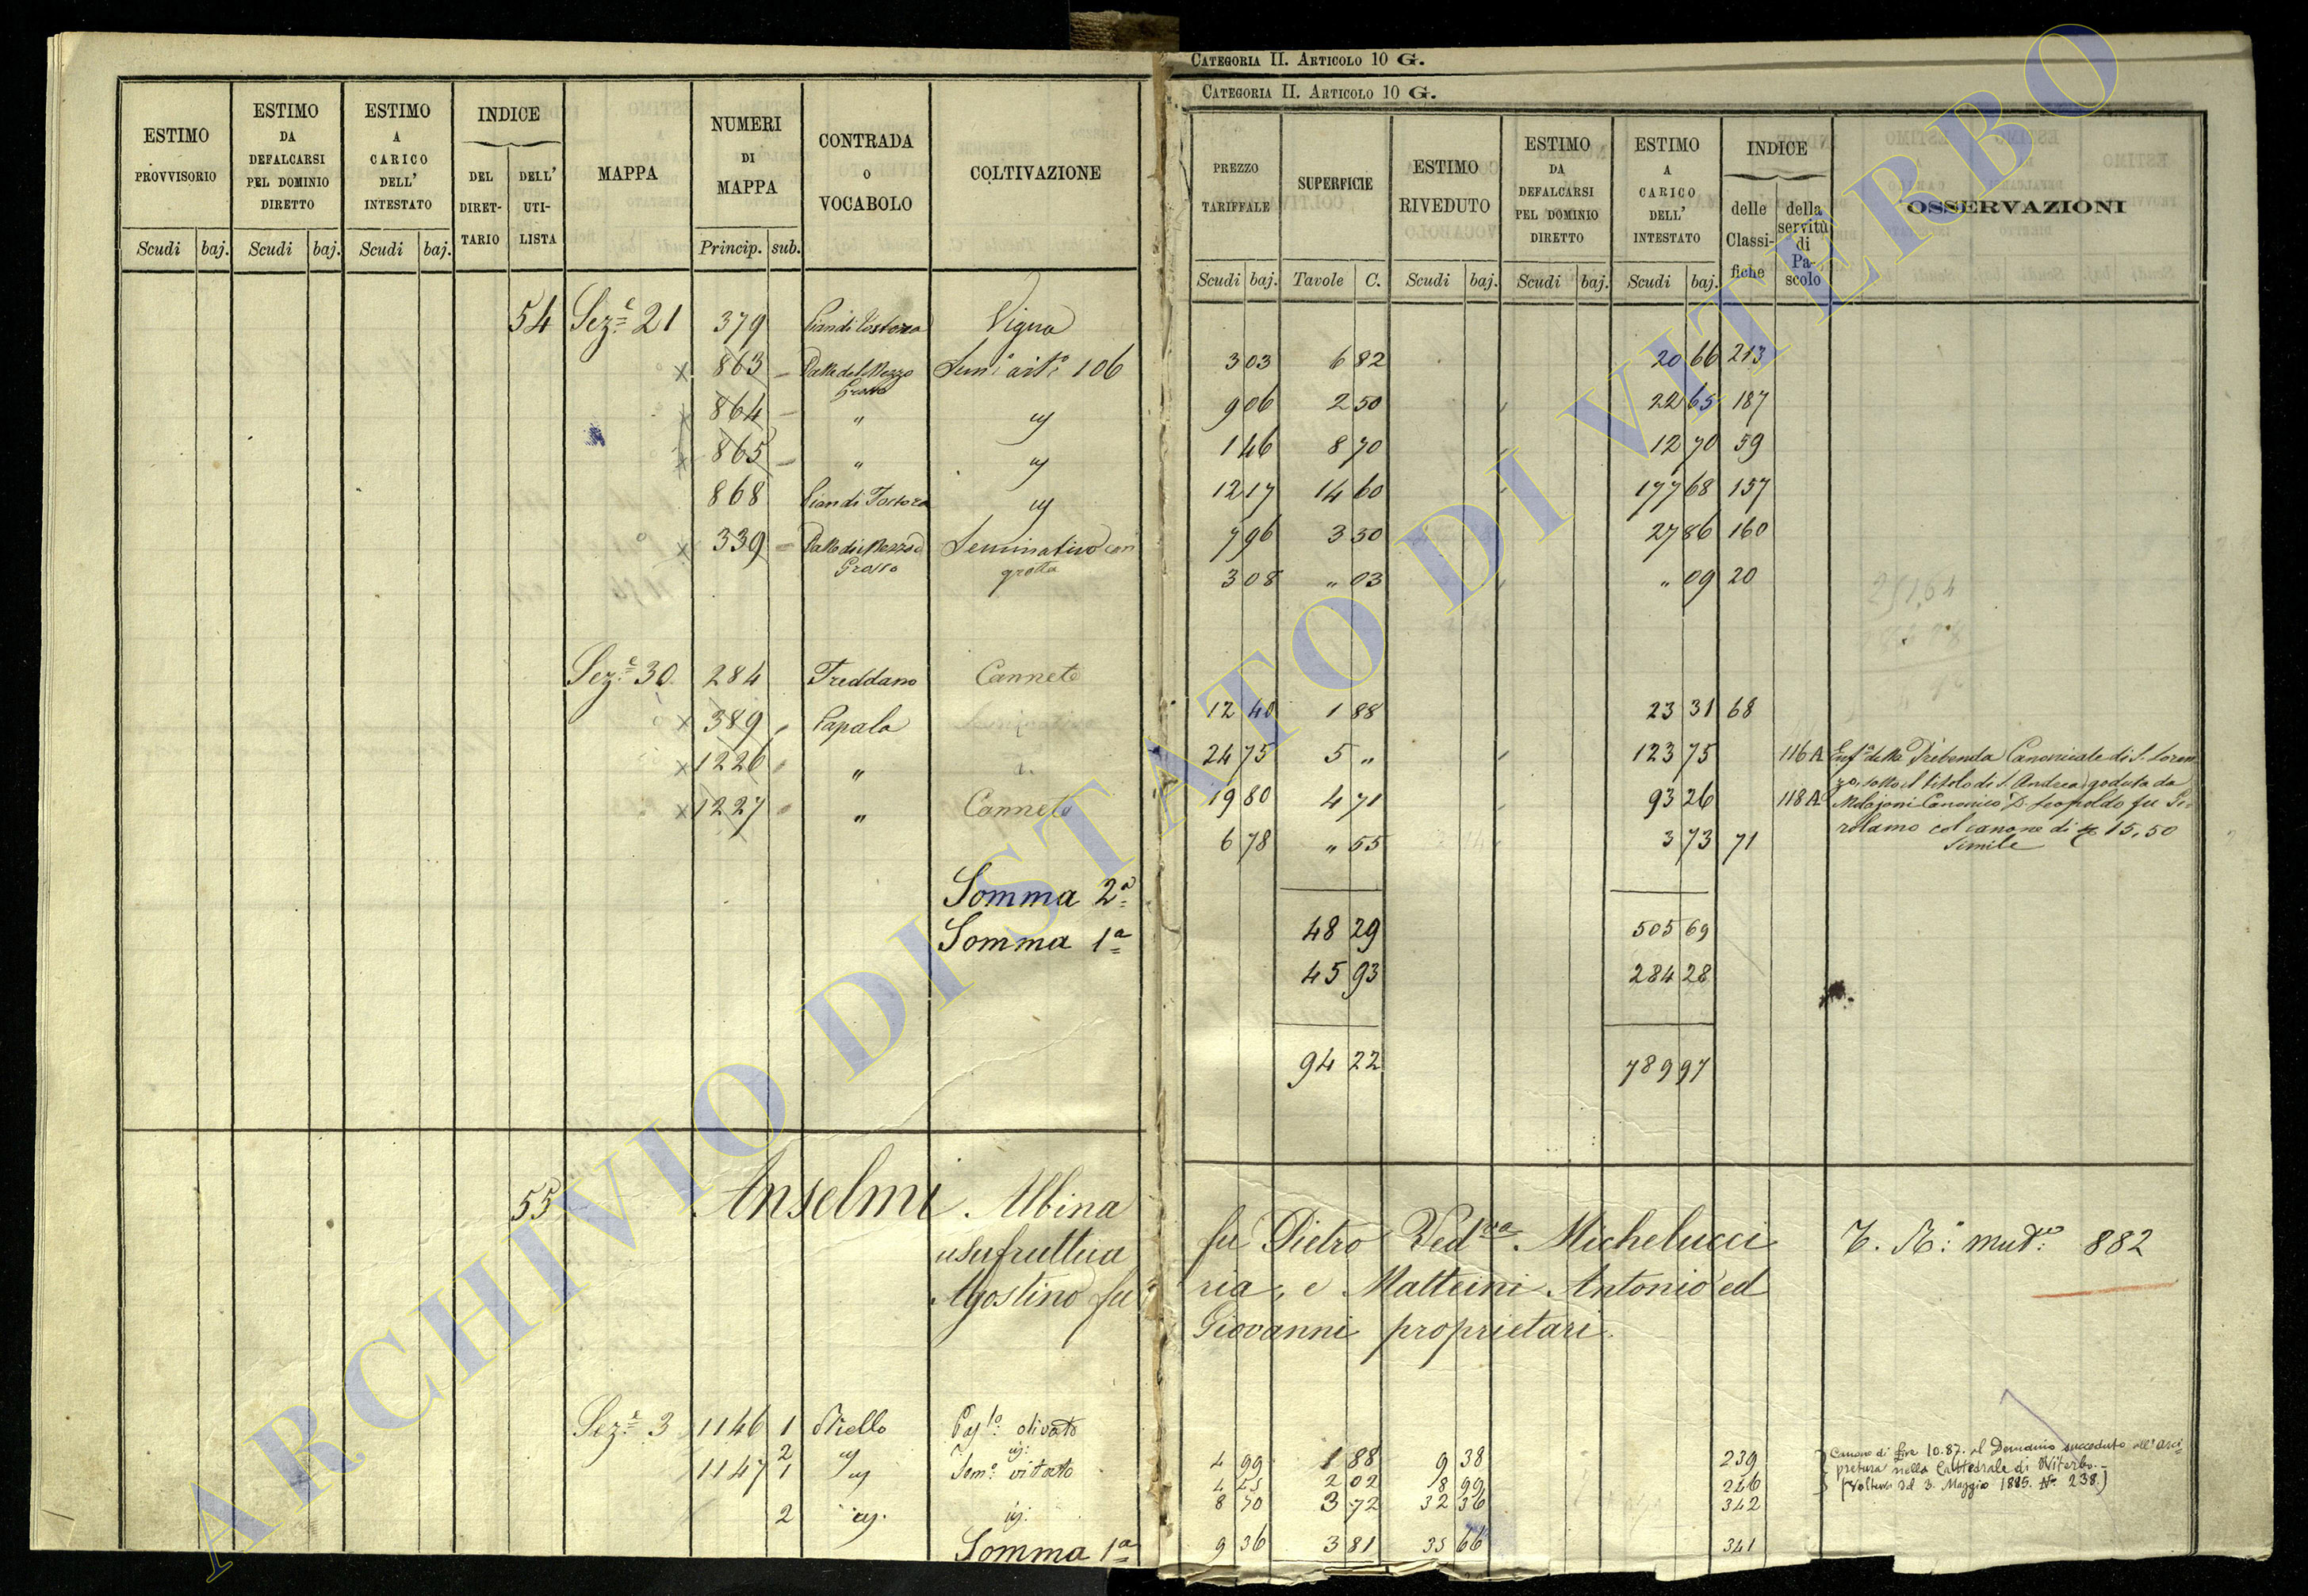 CATEGORIA II. ARTICOLO 10 G.
CATEGORIA II. ARTICOLO 10 G.
ESTIMO PROVVISORIO Scudi baj.
ESTIMO DA DEFALCARSI PEL DOMINIO DIRETTO Scudi baj.
ESTIMO A CARICO DELL' INTESTATO Scudi baj.
INDICE DEL DIRET- TARIO DELL' UTI- LISTA
MAPPA
NUMERI DI MAPPA Princip. sub.
CONTRADA O VOCABOLO
COLTIVAZIONE
PREZZO TARIFFALE Scudi baj.
SUPERFICIE Tavole C.
ESTIMO RIVEDUTO Scudi baj.
ESTIMO DA DEFALCARSI PEL DOMINIO DIRETTO Scudi baj.
ESTIMO A CARICO DELL' INTESTATO Scudi baj.
INDICE delle Classi- fiche della servitù di Pa- scolo
OSSERVAZIONI
54 Sez.e 21 379 Vigna 3 03 6 82 20 66 213
x 863 106 9 06 2 50 22 65 187
x 864 " 1 46 8 70 12 70 59
x 865 " 12 17 14 60 177 68 157
868 7 96 3 50 27 86 160
x 339 Grosso Seminativo con grotta 3 08 " 03 " 09 20
Sez.e 30 284 Freddano Canneto 12 40 1 88 23 31 68
x 389 Papala 24 75 5 " 123 75 116 A
x 1226 " 19 80 4 71 93 26 118 A
x 1227 " Canneto 6 78 " 55 3 73 71
Enf.a della Prebenda Canonicale di S. Loren
zo, sotto il titolo di S. Andrea goduta da
Canonico D. Leopoldo fu Gi-
rolamo col canone di 15,50
Simile
Somma 2a 48 29 505 69
Somma 1a 45 93 284 28
94 22 789 97
55 Anselmi Albina fu Pietro Ved.va Michelucci
usufruttua ria, e Matteini Antonio ed
Agostino fu Giovanni proprietari.
882
Sez.e 3 1146 1 olivato 4 99 1 88 9 38 239
2 4 45 2 02 8 99 226
1147 1 Sem.o vitato 8 70 3 72 32 36 342
2 9 36 3 81 35 66 341
Canone di Lire 10.87. al Demanio succeduto all'arci-
pretura nella Cattedrale di Viterbo.
(Voltura del 3. Maggio 1885. No. 238.)
Somma 1a
ARCHIVIO DI STATO DI VITERBO